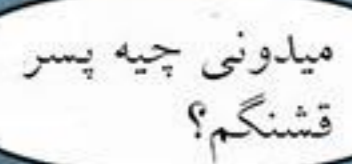 میدونی چیه پسر
قشنگم؟